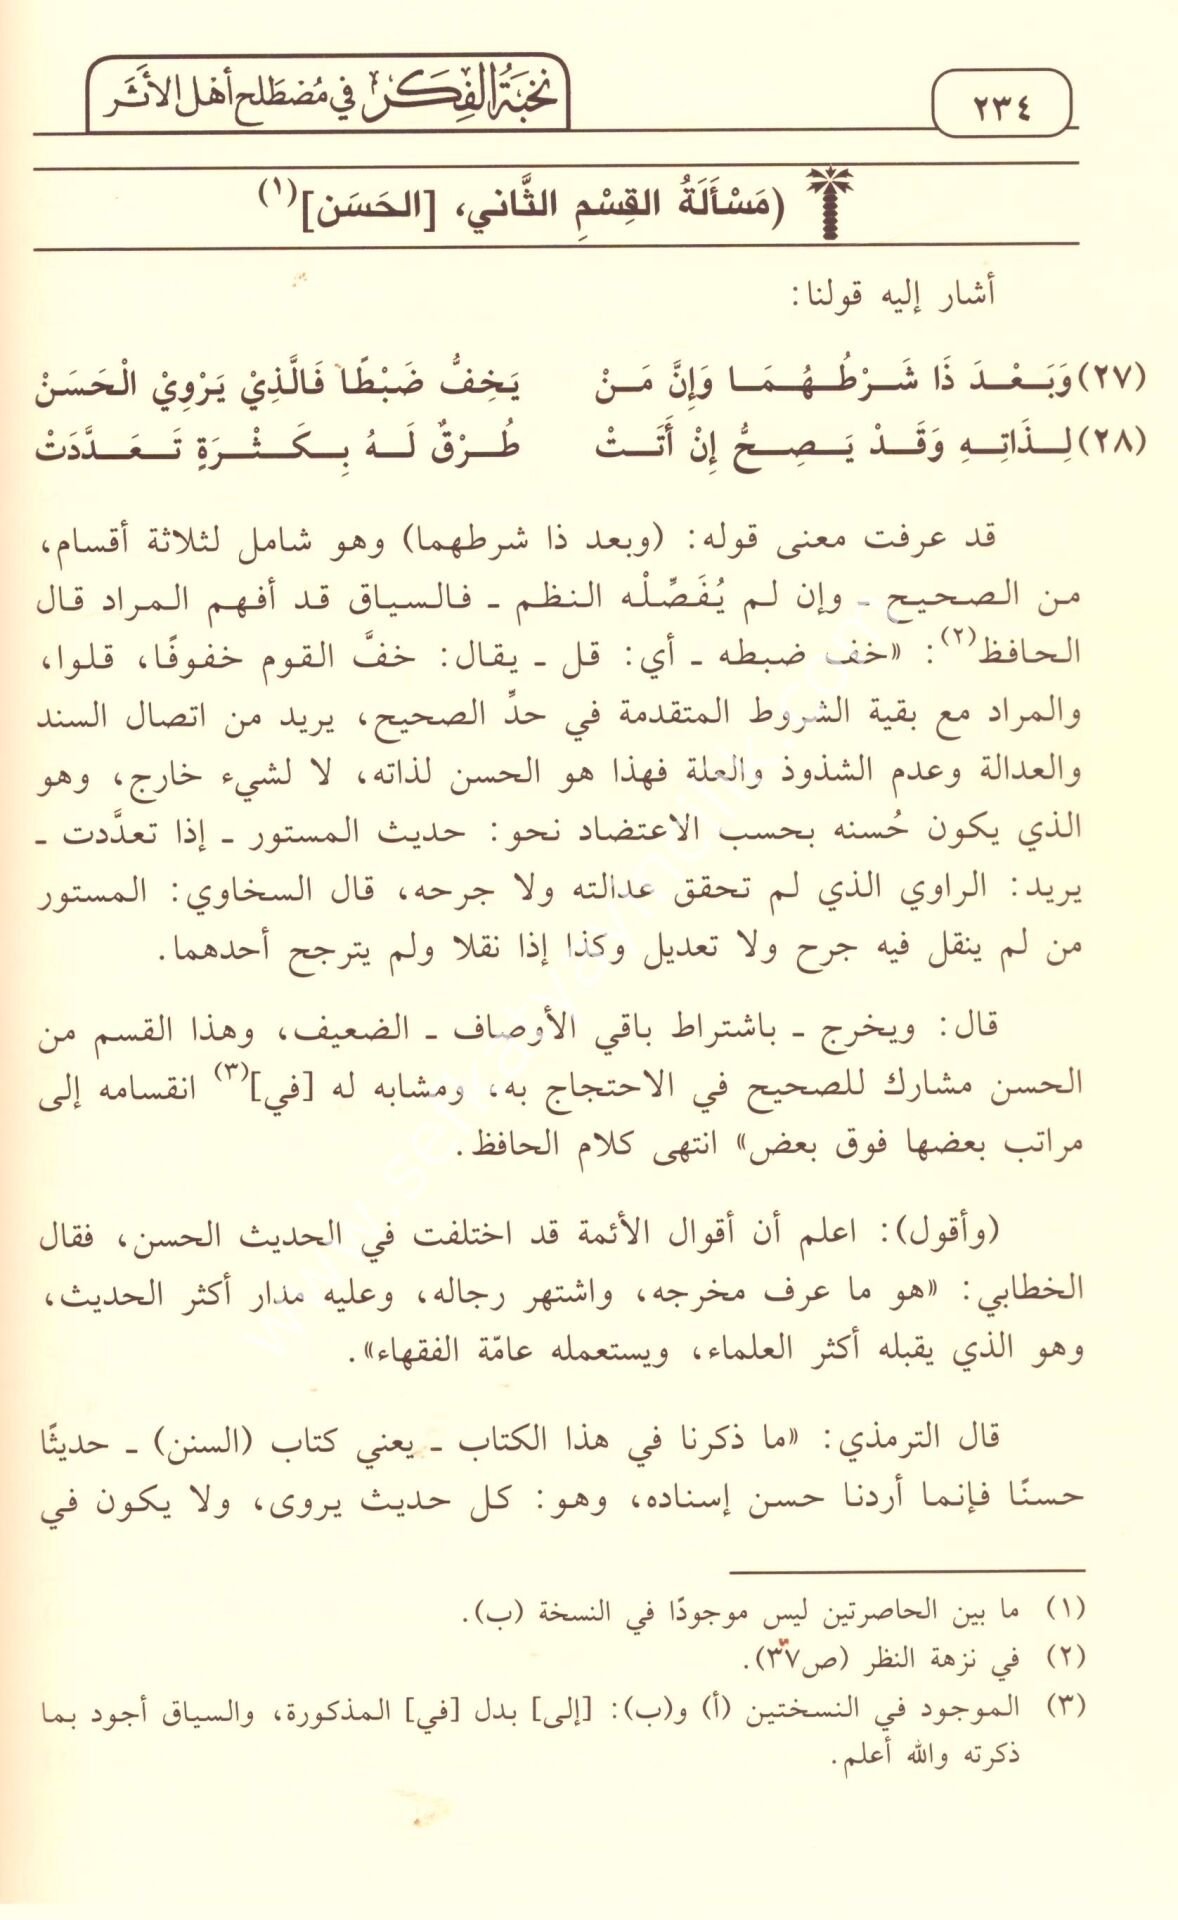 ٢٣٤
نخبة الفكر في مصطلح أهل الأثر
(مَسْأَلَةُ القِسْمِ الثَّاني، [الحَسَن](١)
أشار إليه قولنا:
(٢٧) وَبَعْدَ ذَا شَرْطُهُمَا وَإِنَّ مَنْ يَخِفُّ ضَبْطًا فَالَّذِيْ يَرْوِيْ الْحَسَنْ
(٢٨) لِذَاتِهِ وَقَدْ يَصِحُّ إِنْ أَتَتْ طُرْقٌ لَهُ بِكَثْرَةٍ تَعَدَّدَتْ
قد عرفت معنى قوله: (وبعد ذا شرطهما) وهو شامل لثلاثة أقسام،
من الصحيح ـ وإن لم يُفَصِّلْه النظم ـ فالسياق قد أفهم المراد قال
الحافظ(٢): «خف ضبطه ـ أي: قل ـ يقال: خفَّ القوم خفوفًا، قلوا،
والمراد مع بقية الشروط المتقدمة في حدِّ الصحيح، يريد من اتصال السند
والعدالة وعدم الشذوذ والعلة فهذا هو الحسن لذاته، لا لشيء خارج، وهو
الذي يكون حُسنه بحسب الاعتضاد نحو: حديث المستور ـ إذا تعدَّدت ـ
يريد: الراوي الذي لم تحقق عدالته ولا جرحه، قال السخاوي: المستور
من لم ينقل فيه جرح ولا تعديل وكذا إذا نقلا ولم يترجح أحدهما.
قال: ويخرج ـ باشتراط باقي الأوصاف ـ الضعيف، وهذا القسم من
الحسن مشارك للصحيح في الاحتجاج به، ومشابه له [في](٣) انقسامه إلى
مراتب بعضها فوق بعض» انتهى كلام الحافظ.
(وأقول): اعلم أن أقوال الأئمة قد اختلفت في الحديث الحسن، فقال
الخطابي: «هو ما عرف مخرجه، واشتهر رجاله، وعليه مدار أكثر الحديث،
وهو الذي يقبله أكثر العلماء، ويستعمله عامّة الفقهاء».
قال الترمذي: «ما ذكرنا في هذا الكتاب ـ يعني كتاب (السنن) ـ حديثًا
حسنًا فإنما أردنا حسن إسناده، وهو: كل حديث يروى، ولا يكون في
(١) ما بين الحاصرتين ليس موجودًا في النسخة (ب).
(٢) في نزهة النظر (ص٣٧).
(٣) الموجود في النسختين (أ) و(ب): [إلى] بدل [في] المذكورة، والسياق أجود بما
ذكرته والله أعلم.